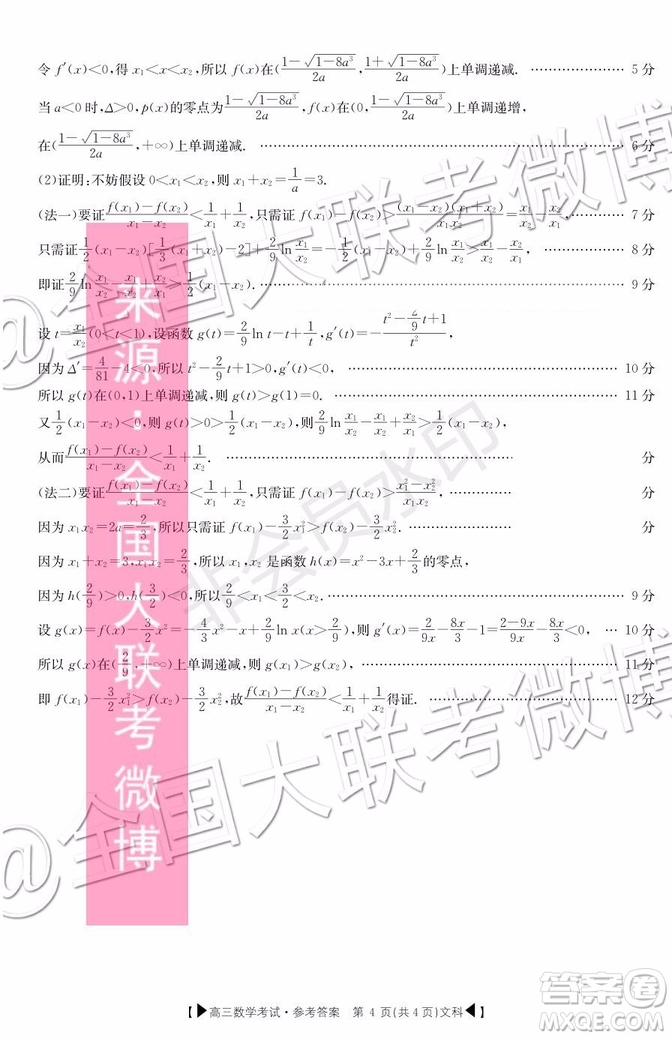 令 f′(x)<0,得 x₁<x<x₂,所以 f(x)在((1-√(1-8a³))/2a, (1+√(1-8a³))/2a)上单调递减. …………… 5分
当 a<0时,Δ>0,p(x)的零点为(1-√(1-8a³))/2a,f(x)在(0,(1-√(1-8a³))/2a)上单调递增,
在((1-√(1-8a³))/2a,+∞)上单调递减. …………… 6分
(2)证明:不妨假设 0<x₁<x₂,则 x₁+x₂=1/a=3.
(法一)要证(f(x₁)-f(x₂))/(x₁-x₂)<1/x₁+1/x₂,只需证 f(x₁)-f(x₂)>(x₁-x₂)(x₁+x₂)/(x₁x₂), …………… 7分
只需证1/2(x₁-x₂)[1/3(x₁+x₂)-2]+2/9 ln x₁/x₂=-1/2(x₁-x₂)+2/9 ln x₁/x₂>x₁/x₂-x₂/x₁, …………… 8分
即证2/9 ln x₁/x₂-x₁/x₂+x₂/x₁>1/2(x₁-x₂). …………… 9分
设 t=x₁/x₂(0<t<1),设函数 g(t)=2/9 ln t-t+1/t,g′(t)=-(t²-2/9 t+1)/t²,
因为 Δ′=4/81-4<0,所以 t²-2/9 t+1>0,g′(t)<0, …………… 10分
所以 g(t)在(0,1)上单调递减,则 g(t)>g(1)=0. …………… 11分
又1/2(x₁-x₂)<0,则 g(t)>0>1/2(x₁-x₂),则2/9 ln x₁/x₂-x₁/x₂+x₂/x₁>1/2(x₁-x₂),
从而(f(x₁)-f(x₂))/(x₁-x₂)<1/x₁+1/x₂. …………… 分
(法二)要证(f(x₁)-f(x₂))/(x₁-x₂)<1/x₁+1/x₂,只需证 f(x₁)-f(x₂)>(x₁²-x₂²)/(x₁x₂), …………… 分
因为 x₁x₂=2a=2/3,所以只需证 f(x₁)-3/2 x₁²>f(x₂)-3/2 x₂². …………… 分
因为 x₁+x₂=3,x₁x₂=2/3,所以 x₁,x₂ 是函数 h(x)=x²-3x+2/3的零点,
因为 h(2/9)>0,h(3/2)<0,所以2/9<x₁<3/2<x₂. …………… 9分
设 g(x)=f(x)-3/2 x²=-4/3 x²-x+2/9 ln x(x>2/9),则 g′(x)=2/9x-8x/3-1<2/9x-8x/3<0, … 10分
所以 g(x)在(2/9,+∞)上单调递减,则 g(x₁)>g(x₂), …………… 11分
即 f(x₁)-3/2 x₁²>f(x₂)-3/2 x₂²,故(f(x₁)-f(x₂))/(x₁-x₂)<1/x₁+1/x₂得证. …………… 12分
来源:全国大联考微博
@全国大联考微博
@全国大联考微博
非会员水印
答案圈
【▶高三数学考试·参考答案 第 4 页(共 4 页)文科◀】